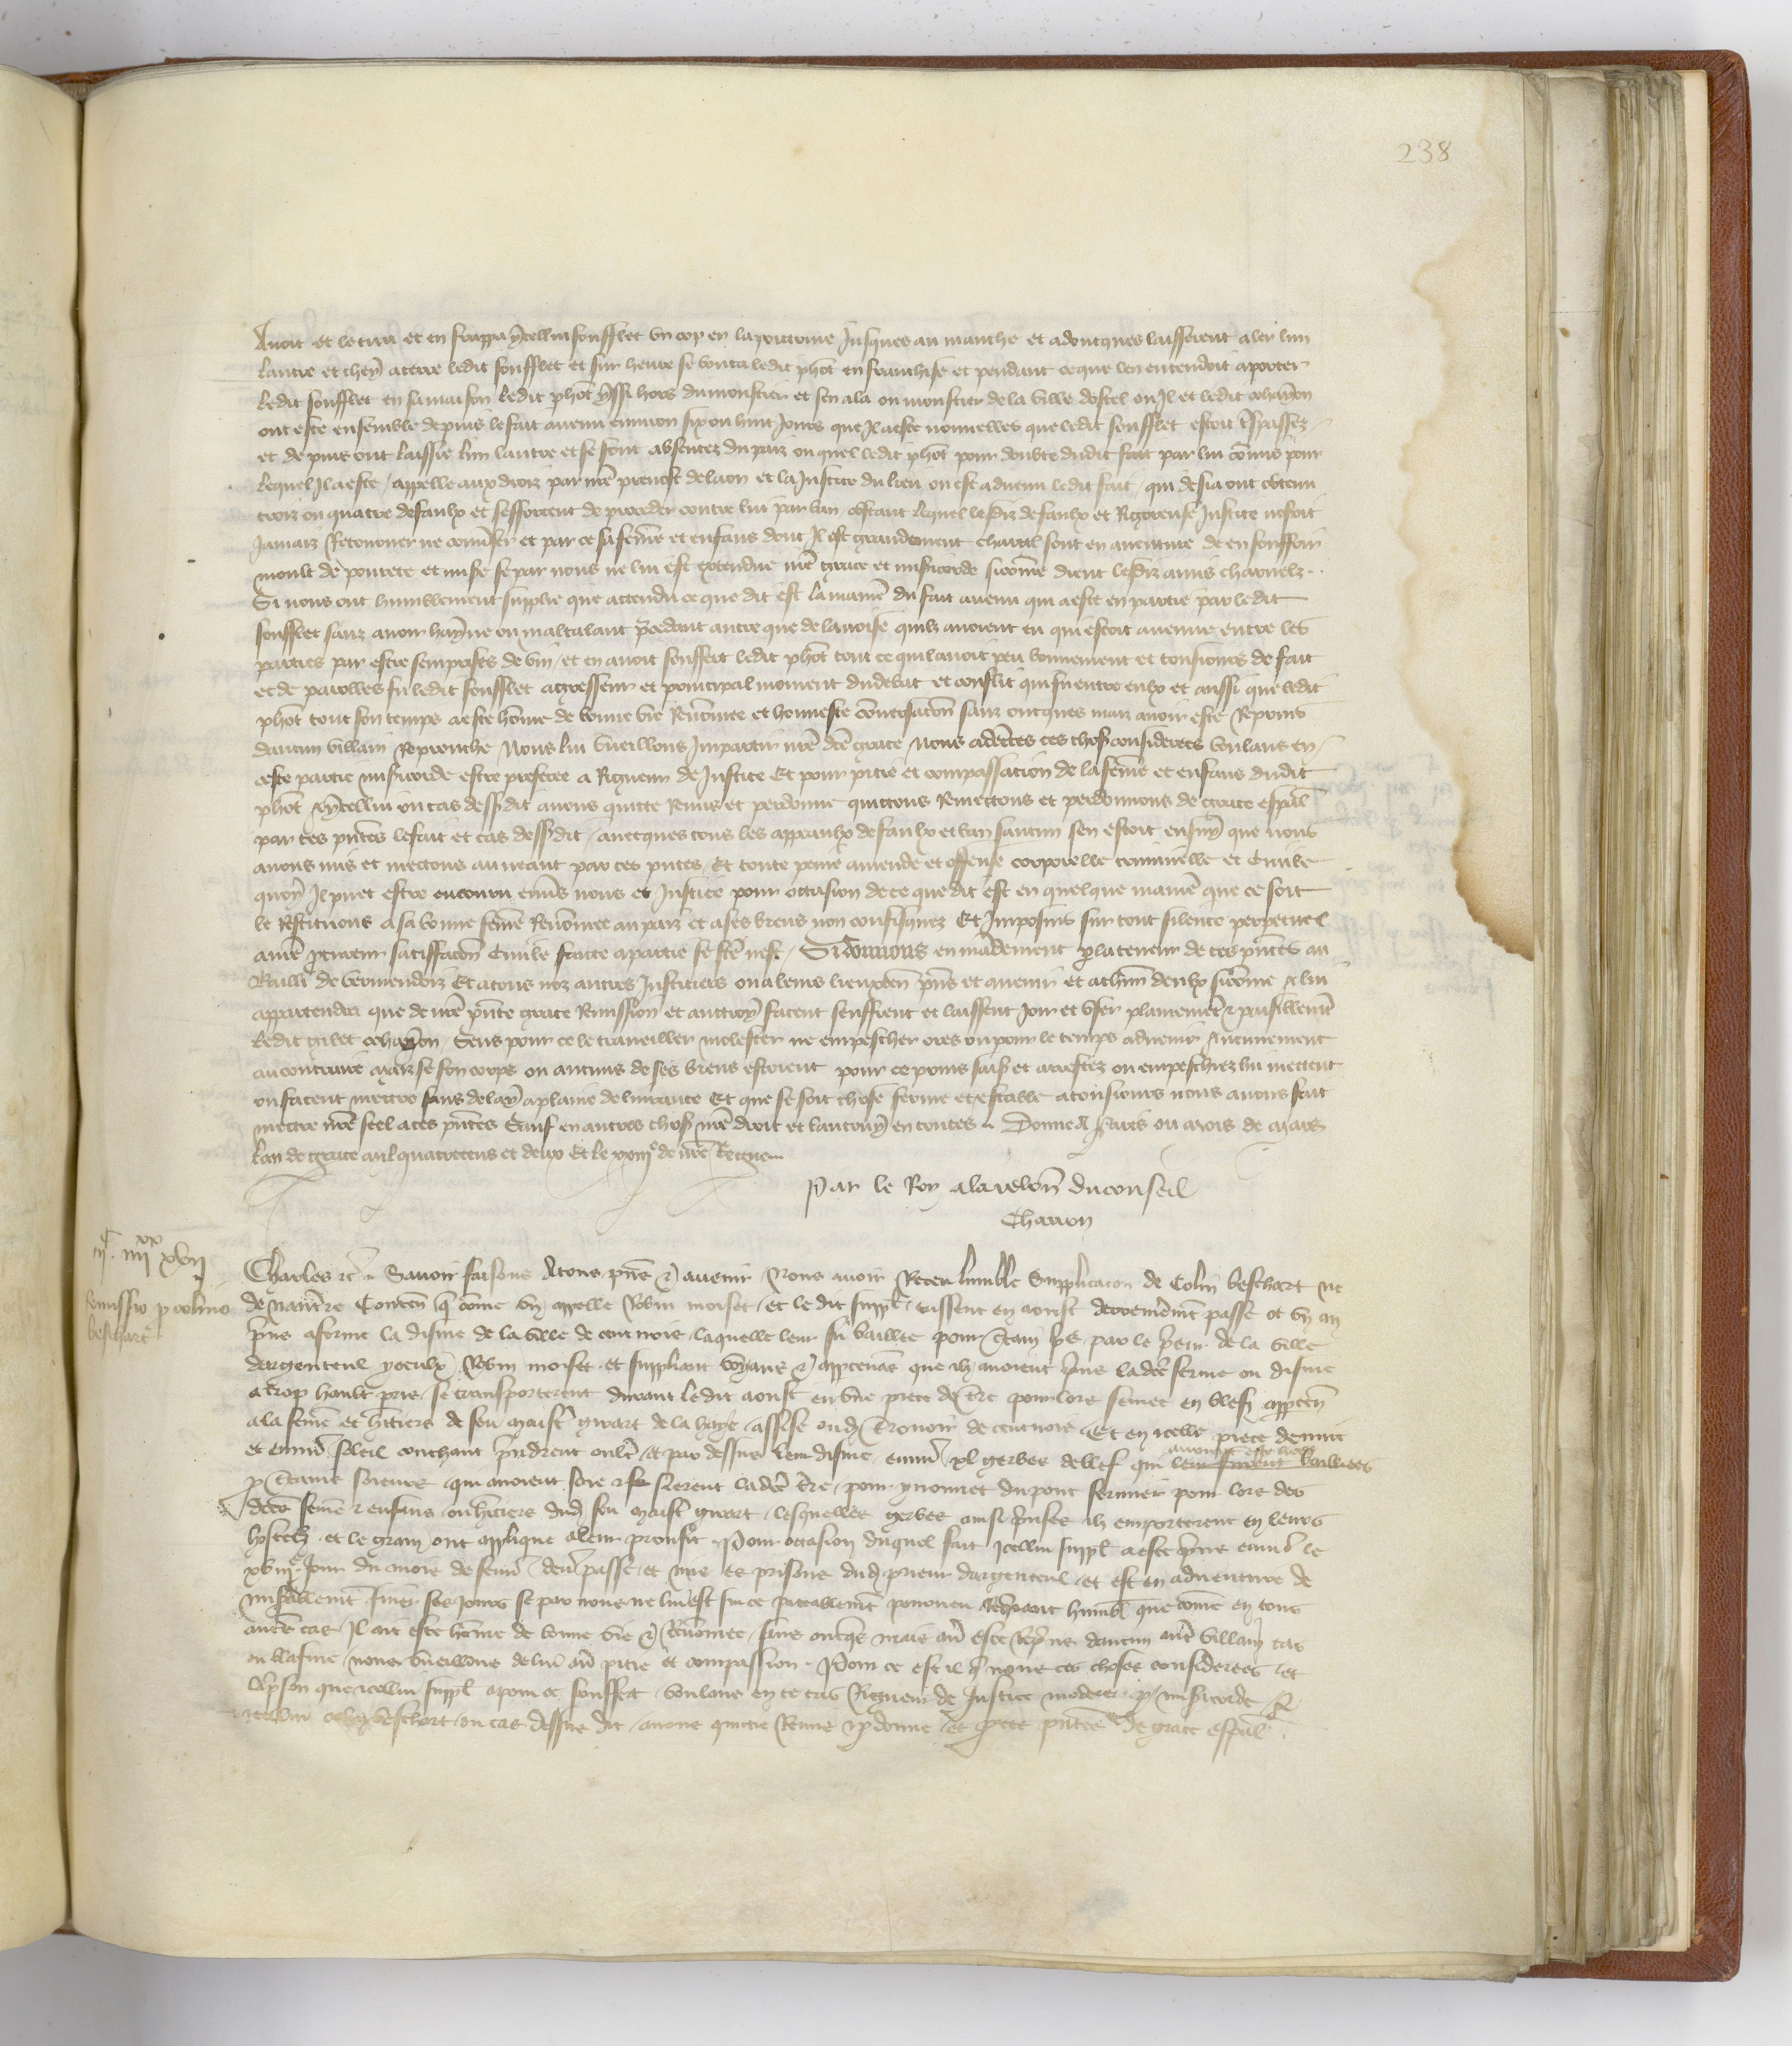 238
Avoit et le tira et en frappa ycellui soufflet un cop en la poictrine jusques au manche et adoncques laisserent aler lun
lautre et chey a terre ledit soufflet et sur heure se bouta ledit phot en franchise et pendant ce que len entendoit aporter
ledit soufflet en sa maison ledit phot yssi hors du monstier et sen ala ou monstier de la ville dostel ou Il et ledit
ont este ensemble depuis le fait avenu environ six ou huit Jours que Il a este nouvelles que ledit soufflet estoit tspassez
et depuis ont laissie lun lautre et se sont absentez du pais ou quel ledit phot pour doubte dudit fait par lui comis pour
lequel Il a este appelle aux droiz par nre prevost de laon et la Justice du lieu ou est advenu ledit fait qui desia ont obtenu
trois ou quatre defaulx et sefforcent de proceder contre lui par ban obstant lequel lesdiz defaulx et Rigoreuse Justice noseroit
Jamais Retourner ne converser et par ce sa feme et enfans dont Il est grandement chargé sont en aventure de en souffrir
moult de povrete et misere se par nous ne lui est extendue nre grace et misericorde sicome dient lesdiz amis charnelz
Si nous ont humblement supplie que attendu ce que dit est la maniere du fait avenu qui a este en partie par ledit
soufflet sanz avoir hayne ou maltalant precedant autre que de la noise quilz avoient eu qui estoit avenue entre les
parties par estre sempristes de vin et en avoit souffert ledit phot tout ce quil avoit peu bonnement et tousiours de fait
et de parolles fu ledit soufflet agresseur et principal moment du debat et conflit qui fu entre eulx et aussi que ledit
phot tout son temps a este home de bonne vie Renomee et honneste conversacion sanz oncques mais avoir este Repris
daucun villain Reprouche Nous lui vueillons Impartir nre dce grace Nous adcertes ces choses considerees voulans en
ceste partie misericorde estre preferee a Rigueur de Justice Et pour pitie et compassacion de la feme et enfans dudit
phot A ycellui ou cas dessusdit avons quitte Remis et perdonne quittons Remettons et perdonnons de grace espal
par ces pntes le fait et cas dessusdit avecques tous les appeaulx defaulx et ban saucun sen estoit ensuy que nous
avons mis et mettons au neant par ces pntes Et toute peine amende et offense corporelle criminelle et Civile
quoy Il puet estre encouru envers nous et Justice pour occasion de ce que dit est en quelque maniere que ce soit
le Restituons a sa bonne feme Renomee au pais et a ses biens non confisquez Et Imposons sur tout silence perpetuel
a nre procureur satisfacion Civile faicte a partie se fte nest Si donnons en mandement par la teneur de ces pntes au
Bailli de vermendois Et a tous noz autres Justiciers ou a leurs lieuxten pns et avenir et a chun deulx sicome a lui
appartendra que de nre pnte grace Remission et auctroy facent seuffrent et laissent Joir et user plainement et paisiblement
ledit Sens pour ce le traveillier molester ne empescher ores ou pour le temps advenir Aucunement
au contraire Mais se son corps ou aucuns de ses biens estoient pour ce prins saisis et arrestez ou empeschez lui mettent
ou facent mettre sans delay a plaine delivrance Et que ce soit chose ferme et estable a tousiours nous avons fait
mettre nre seel a ces pntes Sauf en autres choses nre droit et lautruy en toutes Donne A Paris ou mois de Mars
Lan de grace mil quatrecens et deux Et le xxiiie de nre Regne
Par le Roy a la relacion du conseil
Charron
iijc iiijxx xvij
Remissio pro colino
beschart
Charles etc Savoir faisons A tous pns et avenir Nous avoir Receu lumble Supplicacion de Colin beschart ne
de nanterre Contenant que come un appelle Robin moiset et le dit suppl eussent en aoust derrenierement passe ot un an
prins a ferme la disme de la ville de laquelle leur fu baillee pour certain pris par le prieur de la ville
dargenteul yceulx Robin moiset et suppliant voyans et appcevans que ilz avoient prins ladce ferme ou disme
a trop hault pris se transporterent durant ledit aoust en une piece de terre pour lors semee en blefz apptenant
a la feme et heritiers de feu maistre gwart de la haye assise oudit terrouoir de Et en icelle piece de nuit
et environ soleil couchant prindrent oultre et par dessus leur disme environ xl gerbes de blef qui leur furent baillees
avoient este liees
par certains soieurs qui avoient soie et lierent ladce terre pour ynomet dupont fermier pour lors des
dces feme et enfans ou heritiers dud feu maistre gwart lesquelles gerbes ainsi prinses ilz emporterent en leurs
hostelz et le grain ont applique a leur prouffit Pour occasion duquel fait Icellui suppl a este prins environ le
xviije Jour du mois de fevrier derrenier passe et mis es prisons dud prieur dargenteul et est en adventure de
miserablement finer ses Jours se par nous ne lui est sur ce piteablement pourveu Requerant humblement que come en tous
autres cas Il ait este home de bonne vie et Renomee sans oncques mais avoir este Reprins daucun autre villain cas
ou blasme nous vueillons de lui avoir pitie et compassion Pour ce est il que nous ces choses considerees et
la prison que icellui suppl a pour ce souffert voulans en ce cas Rigueur de Justice moderer par misericorde A
icellui colin beschart ou cas dessus dit avons quitte Remis et pdonne et par ces pntes de grace espal